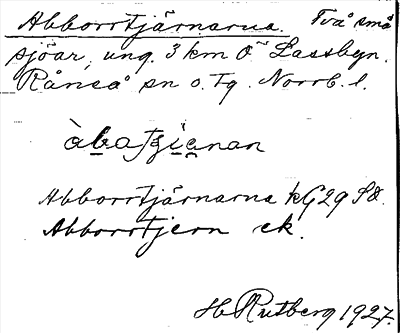 Abborrtjärnarna. Två små
sjöar, ung. 3 km Ö Lassbyn.
Råneå sn o. tg. Norrb. l.
Abborrtjärnarna kG29 SO.
Abborrtjern ek.
H. Rutberg 1927.